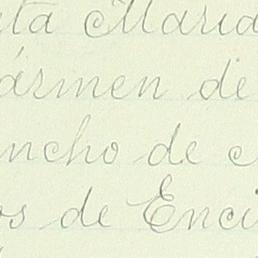 ta Maria
ármen de
ncho de
os de Enci